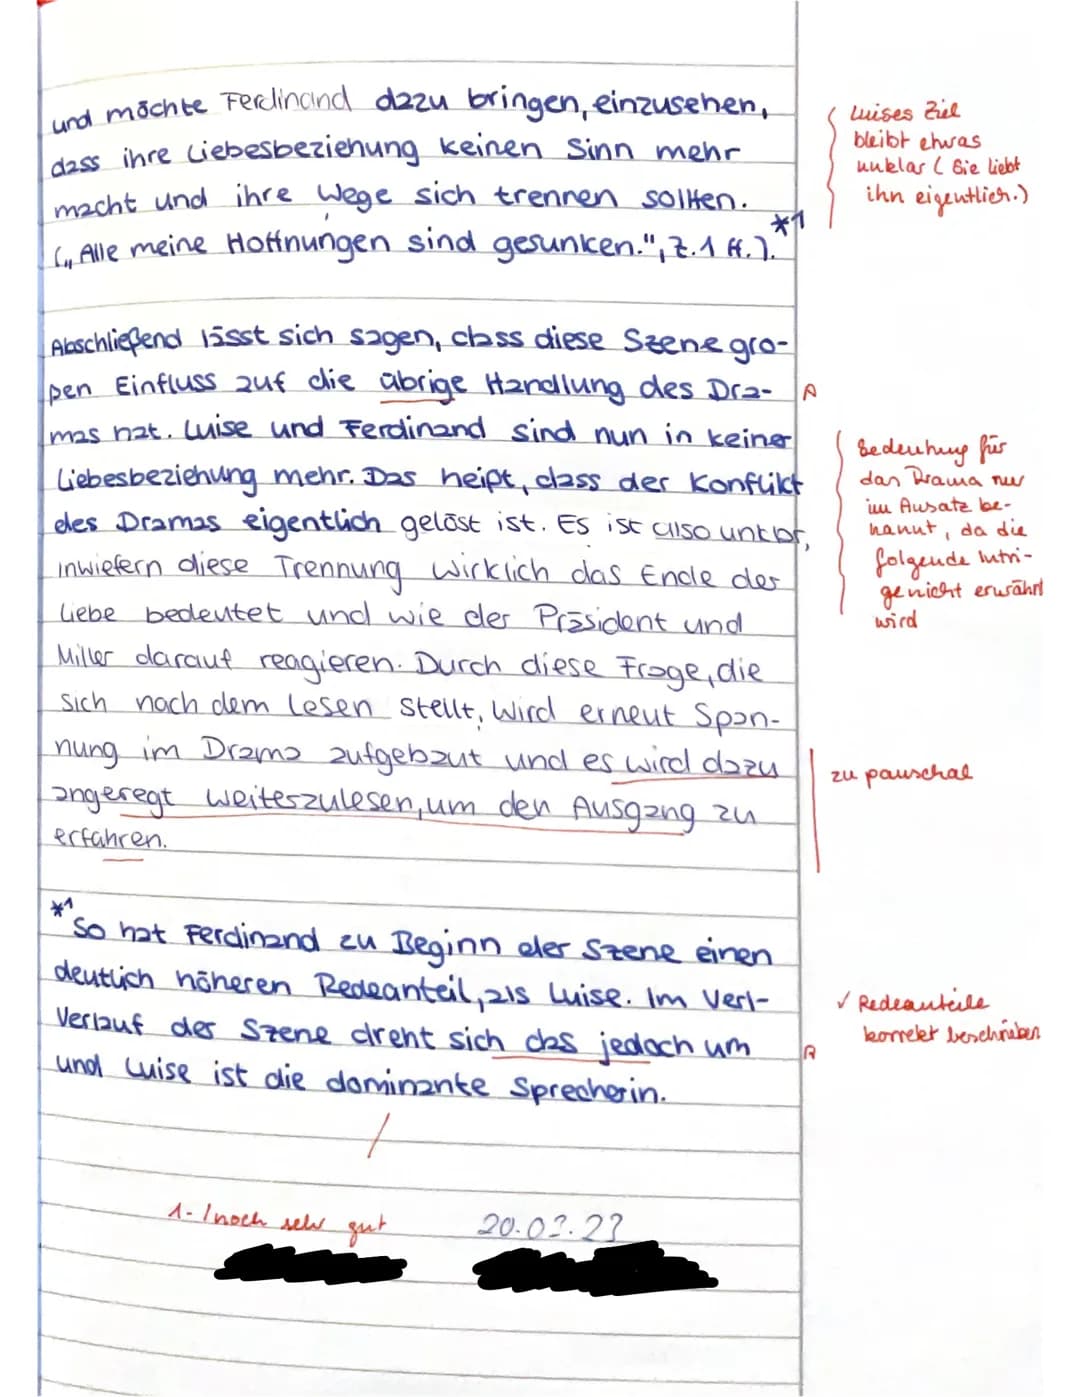 und möchte Ferdinand dazu bringen, einzusehen,
dass ihre Liebesbeziehung keinen Sinn mehr
macht und ihre Wege sich trennen sollten.
(„Alle meine Hoffnungen sind gesunken.", Z.1 ff.). *1
Luises Ziel
bleibt etwas
unklar (Sie liebt
ihn eigentlich.)
Abschließend lässt sich sagen, dass diese Szene gro-
ßen Einfluss auf die übrige Handlung des Dra-
A
mas hat. Luise und Ferdinand sind nun in keiner
Liebesbeziehung mehr. Das heißt, dass der Konflikt
des Dramas eigentlich gelöst ist. Es ist also unklar,
inwiefern diese Trennung wirklich das Ende der
Liebe bedeutet und wie der Präsident und
Miller darauf reagieren. Durch diese Frage, die
sich nach dem Lesen stellt, wird erneut Span-
nung im Drama aufgebaut und es wird dazu
angeregt weiterzulesen, um den Ausgang zu
erfahren.
Bedeutung für
das Drama nur
im Ansatz be-
nannt, da die
folgende Intri-
ge nicht erwähnt
wird
zu pauschal
*1 So hat Ferdinand zu Beginn der Szene einen
deutlich höheren Redeanteil, als Luise. Im Verl-
Verlauf der Szene dreht sich das jedoch um
A
und Luise ist die dominante Sprecherin.
✓ Redeanteile
korrekt beschrieben
1- / noch sehr gut
20.03.23